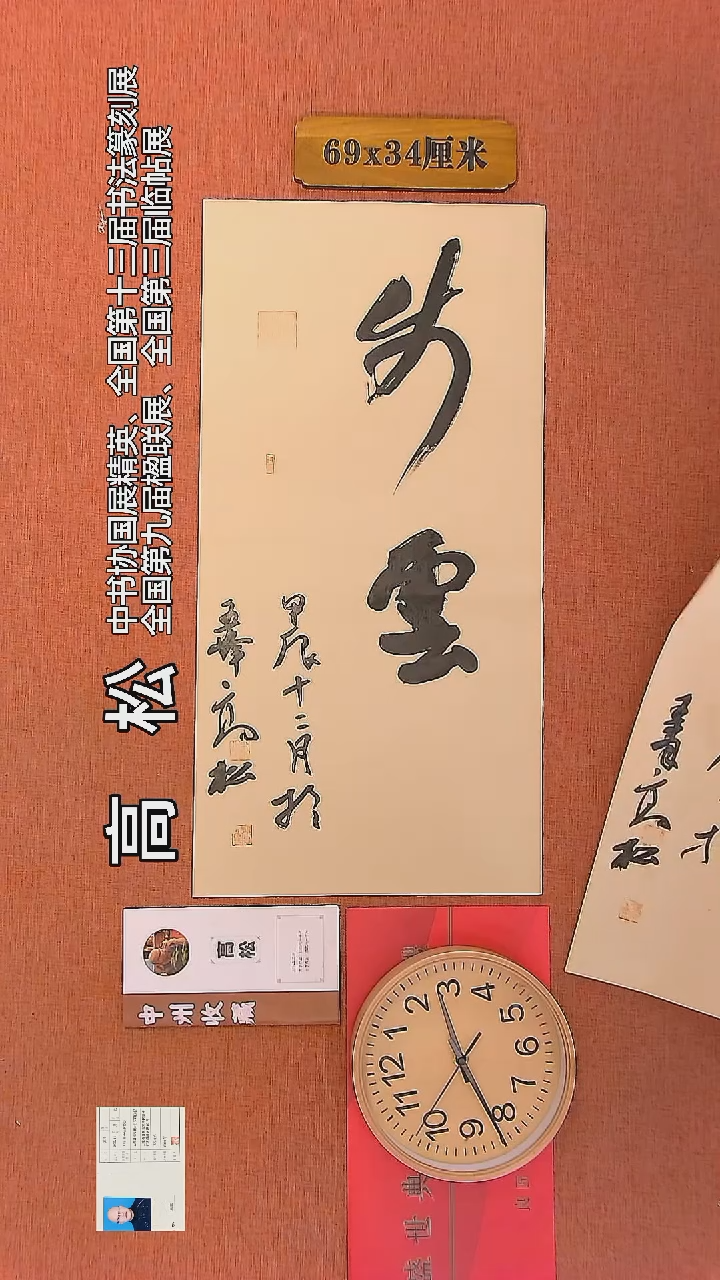 69x34厘米
高 松
中书协国展精英、全国第十三届书法篆刻展
全国第九届楹联展、全国第三届临帖展
雲
甲辰十二月於
高松
高松
高松
中州收藏
盛世典
12
1
2
3
4
5
6
7
8
9
10
11